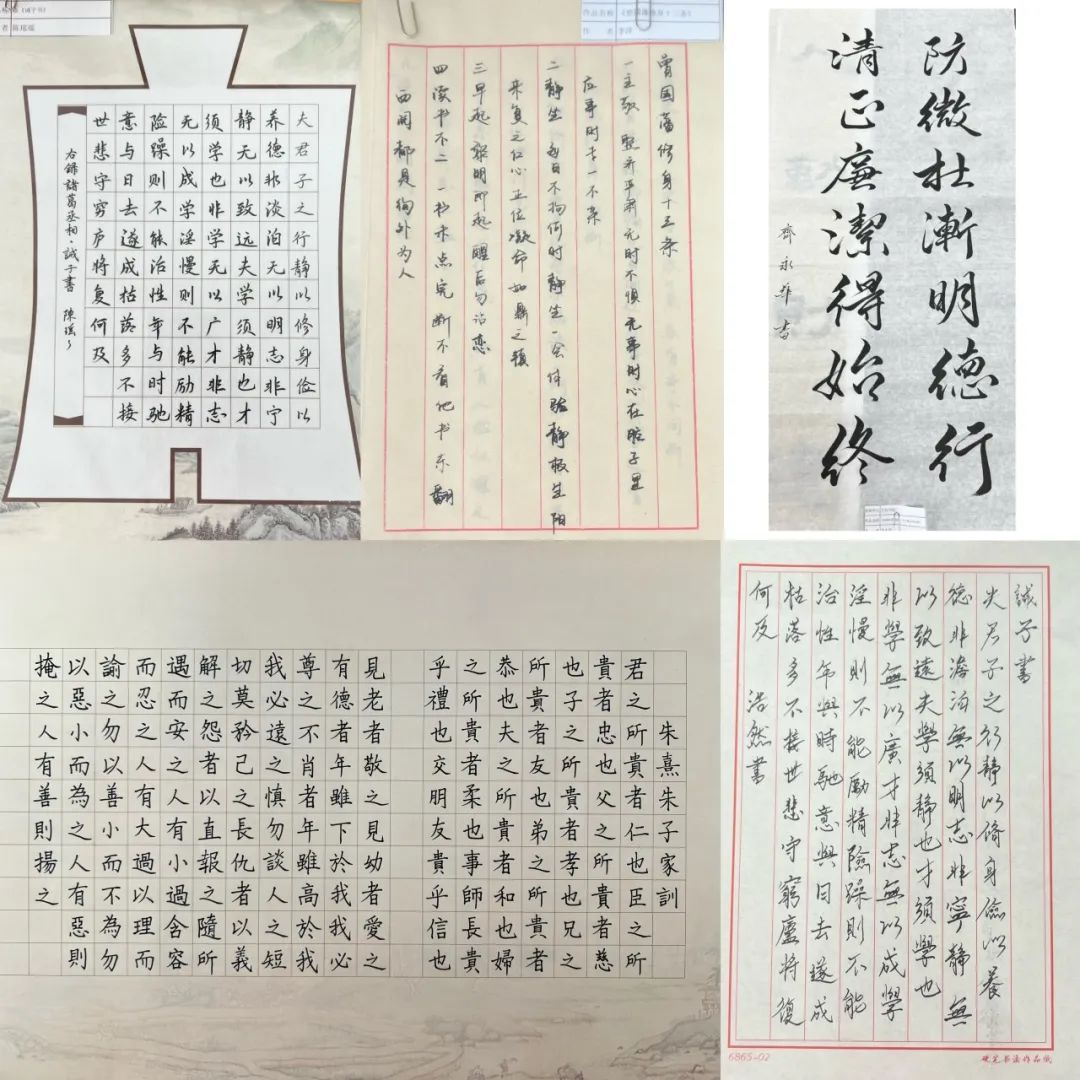 《诫子书》
者 陈瑶瑶
夫君子之行静以修身俭以
养德非淡泊无以明志非宁
静无以致远夫学须静也才
须学也非学无以广才非志
无以成学淫慢则不能励精
险躁则不能治性年与时驰
意与日去遂成枯落多不接
世悲守穷庐将复何及
右錄諸葛丞相·誡子書 陳瑤々
作品名称 《曾国藩修身十三条》
作 者 李洋
曾国藩修身十三条
一主敬 整齐严肃 无时不惧 无事时心在腔子里
应事时专一不杂
二静坐 每日不拘何时 静坐一会 体验静极生阳
来复之仁心 正位凝命 如鼎之镇
三早起 黎明即起 醒后勿沾恋
四读书不二 一书未点完 断不看他书 东翻
西阅都是徇外为人
防微杜漸明德行
清正廉潔得始終
齊永華書
朱熹朱子家訓
君之所貴者仁也臣之所
貴者忠也父之所貴者慈
也子之所貴者孝也兄之
所貴者友也弟之所貴者
恭也夫之所貴者和也婦
之所貴者柔也事師長貴
乎禮也交朋友貴乎信也
見老者敬之見幼者愛之
有德者年雖下於我我必
尊之不肖者年雖高於我
我必遠之慎勿談人之短
切莫矜己之長仇者以義
解之怨者以直報之隨所
遇而安之人有小過含容
而忍之人有大過以理而
諭之勿以善小而不為勿
以惡小而為之人有惡則
掩之人有善則揚之
誡子書
夫君子之行靜以脩身儉以養
德非澹泊無以明志非寧靜無
以致遠夫學須靜也才須學也
非學無以廣才非志無以成學
淫慢則不能勵精險躁則不能
治性年與時馳意與日去遂成
枯落多不接世悲守窮廬將復
何及 浩然書
6865-02
硬笔书法作品纸